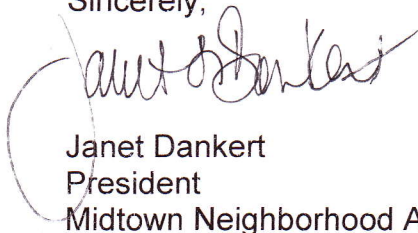 Sincerely,
Janet S Dankert
Janet Dankert
President
Midtown Neighborhood A